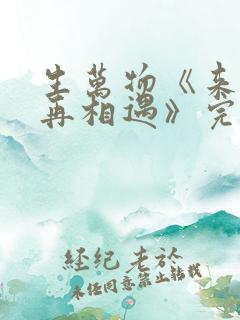 生萬物《来
再相遇》完
經紀老於
未经同意禁止转载